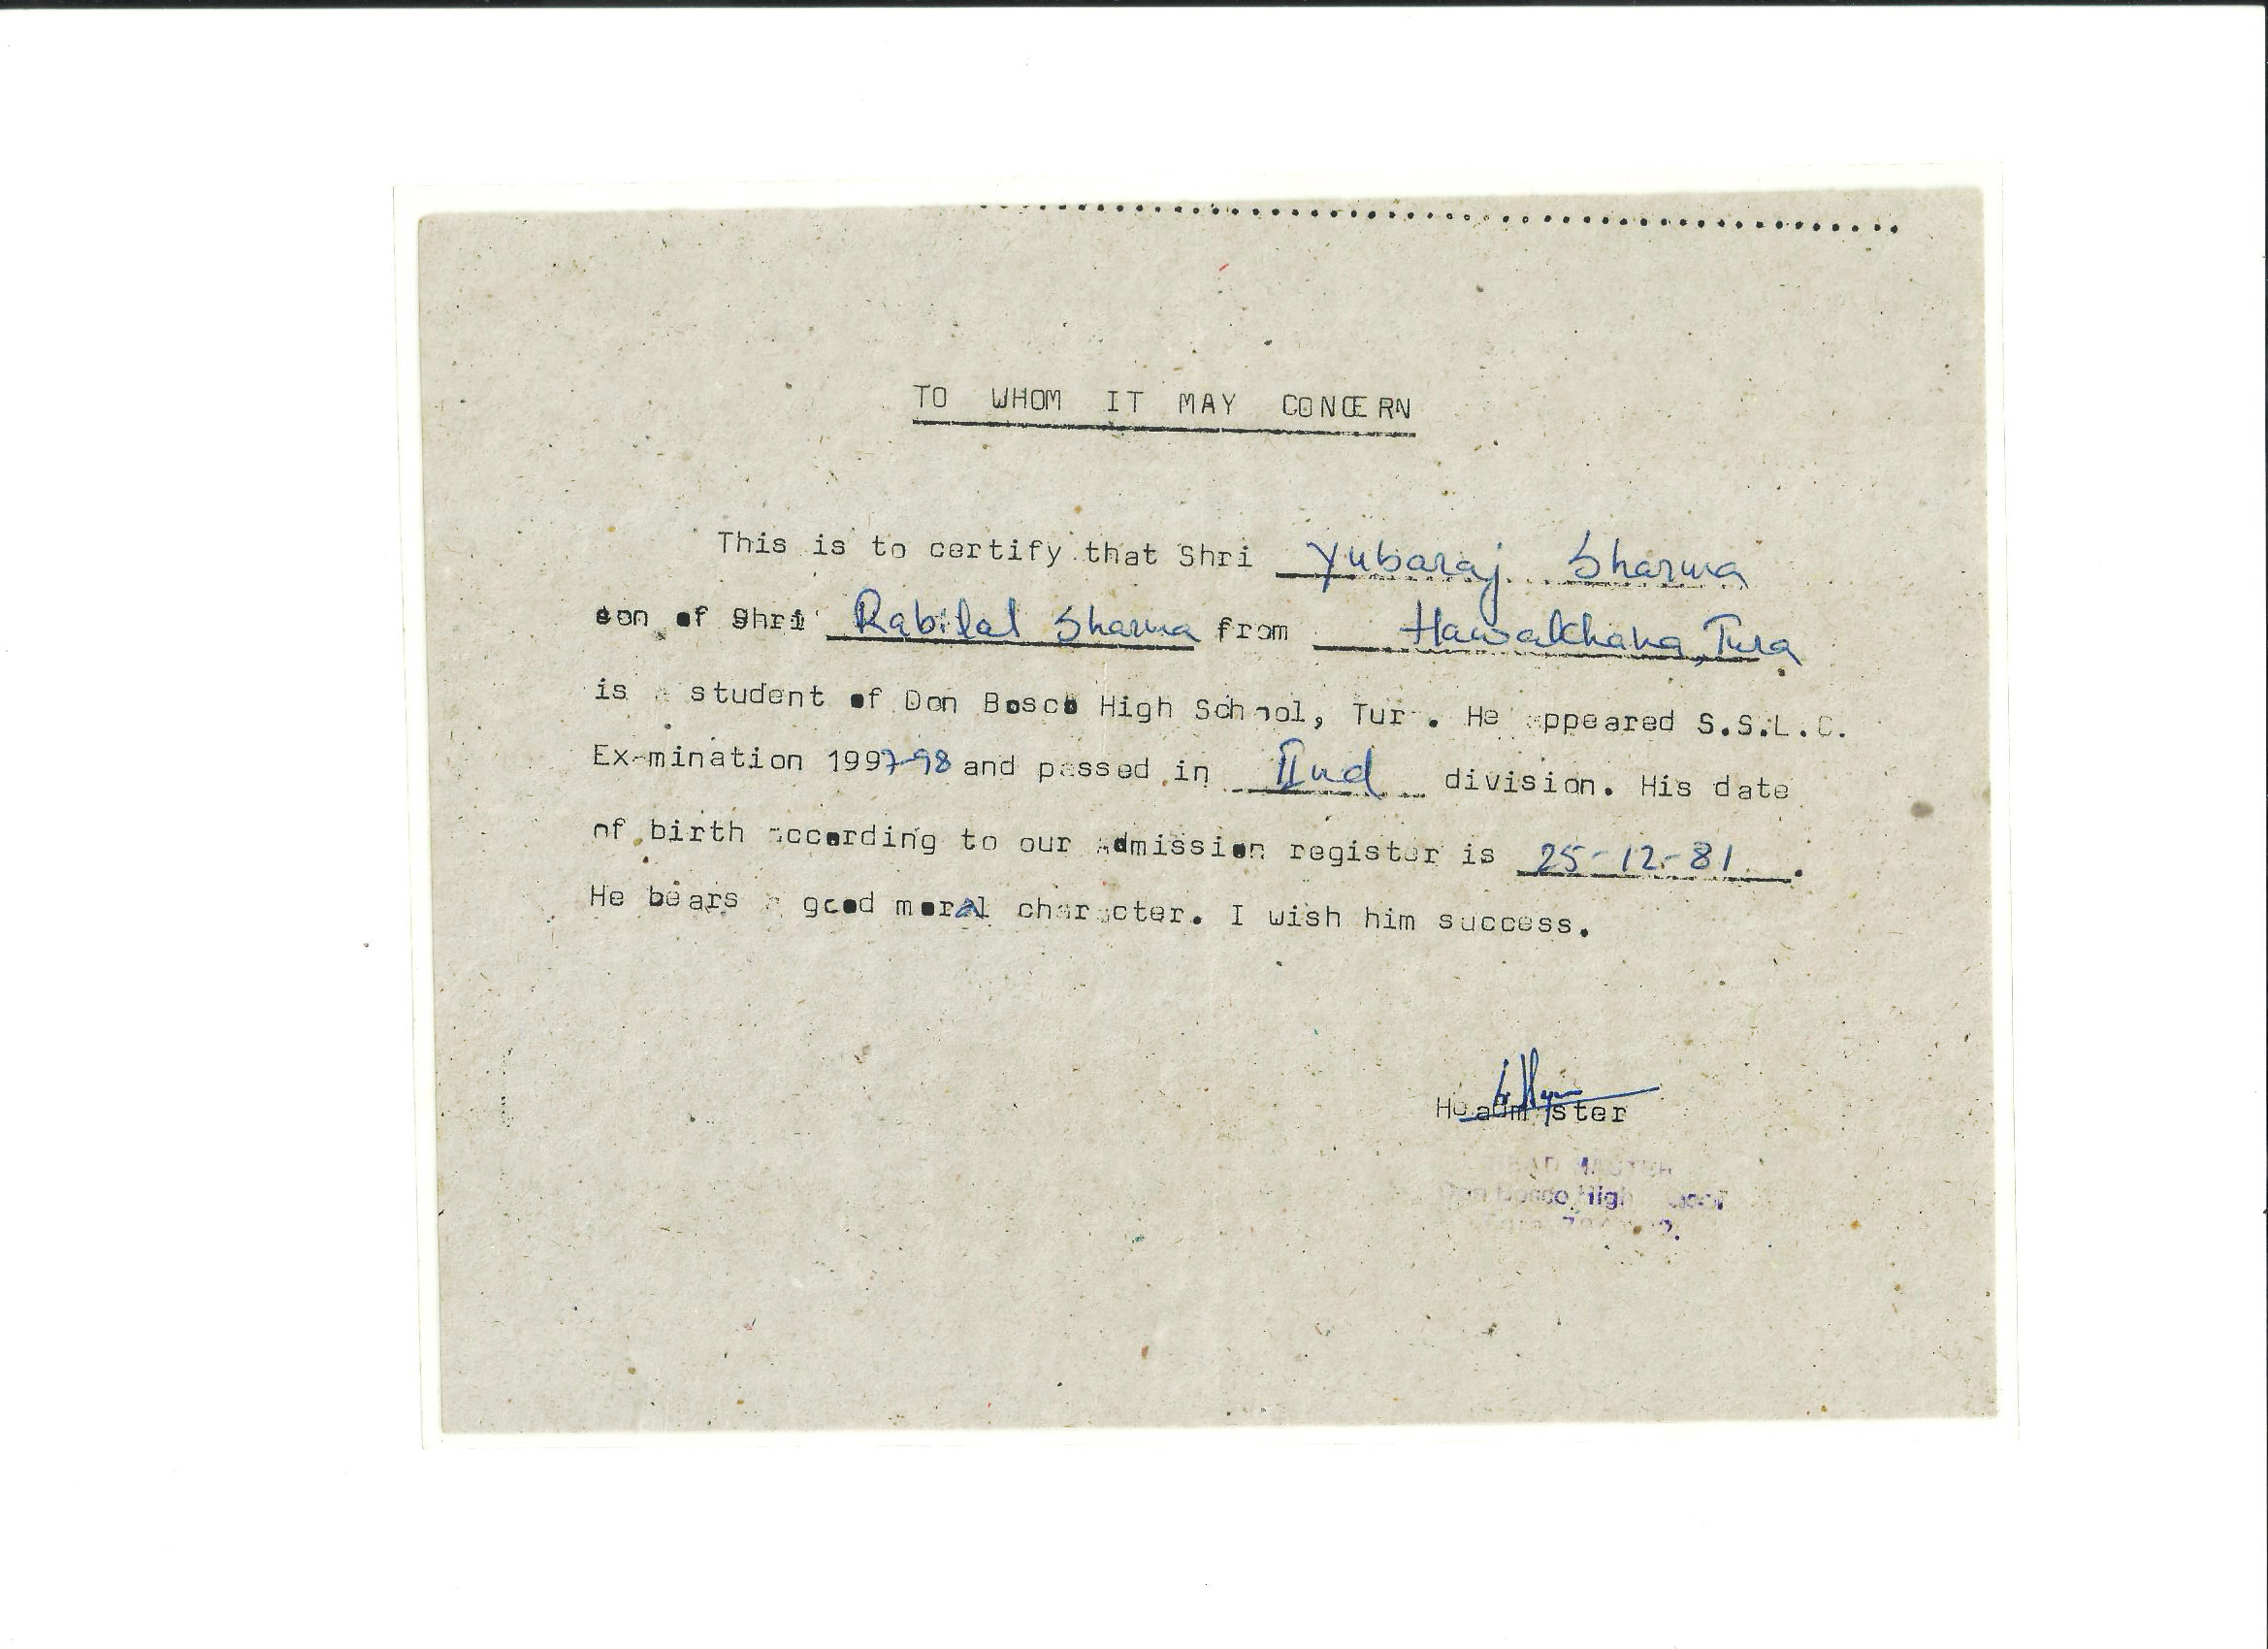 TO WHOM IT MAY CONCERN
This is to certify that Shri Yubaraj Sharma
son of Shri Rabilal Sharma from Hawakhana, Tura
is a student of Don Bosco High School, Tura. He appeared S.S.L.C.
Examination 1997-98 and passed in IInd division. His date
of birth according to our admission register is 25-12-81.
He bears a good moral character. I wish him success.
Headmaster
HEAD MASTER
Don Bosco High School